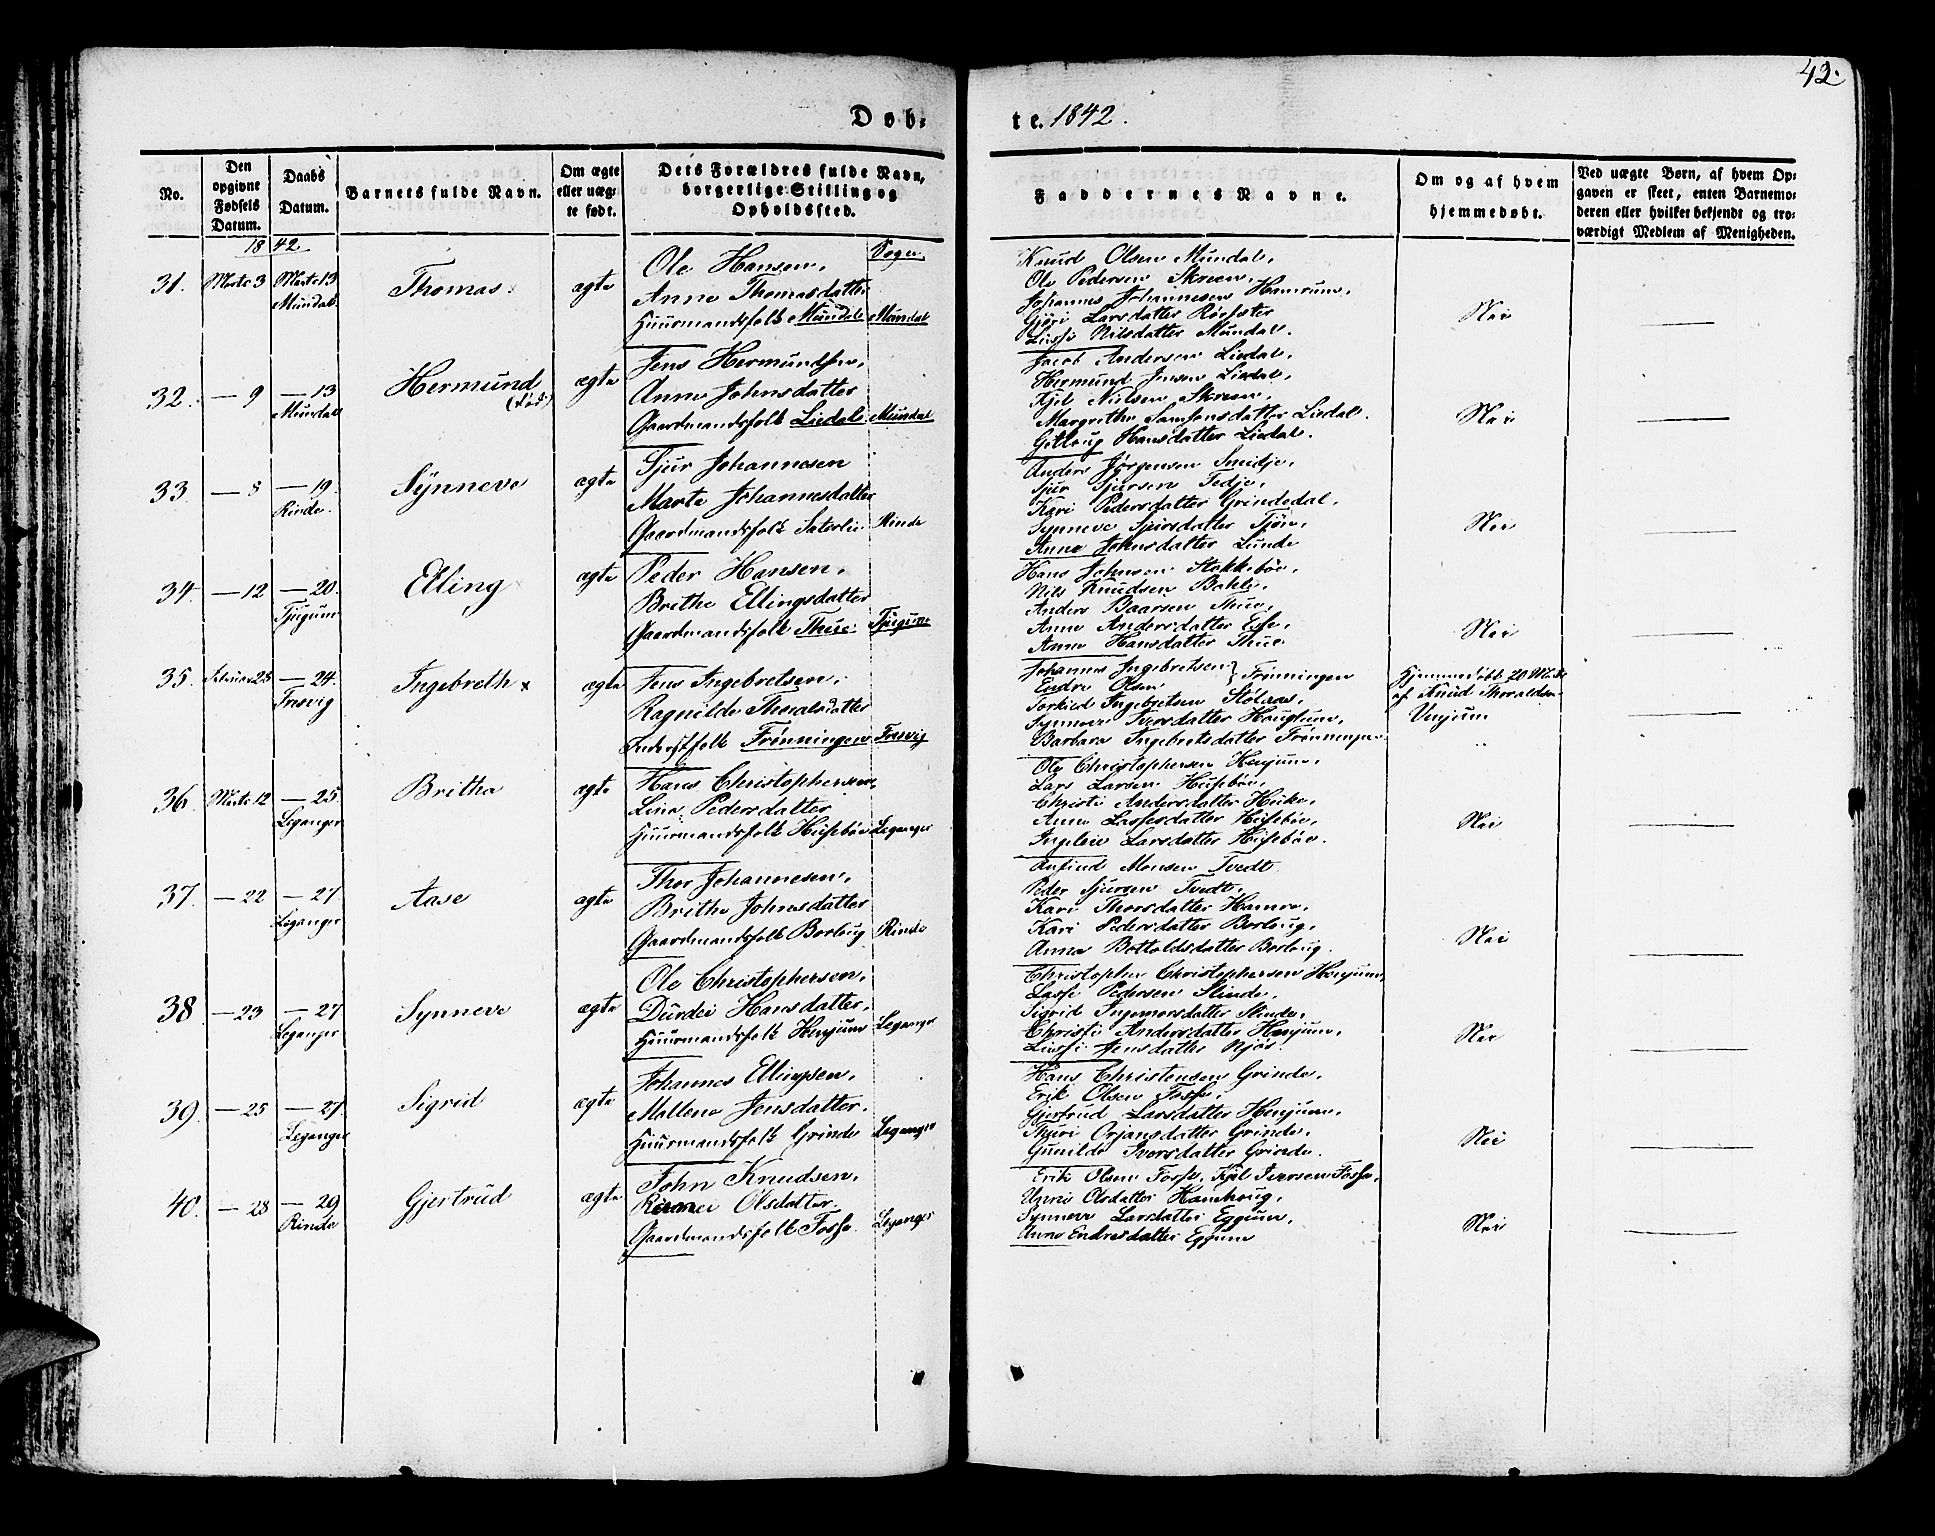 42.
Døb- te. 1842.
No.
Den opgivne Fødsels Datum.
Daabs Datum.
Barnets fulde Navn.
Om ægte eller uægte født.
Dets Forældres fulde Navn, borgerlige Stilling og Opholdssted.
Faddernes Navne.
Om og af hvem hjemmedøbt.
Ved uægte Børn, af hvem Opgaven er skeet, enten Barnemoderen eller hvilket bekjendt og troværdigt Medlem af Menigheden.
1842
Sogn
31. Marts 3 Marts 13 Mundal Thomas. ægte
Ole Hansen,
Anne Thomasdatter
Huusmandsfolk Mundal Mundal
Knud Olsen Mundal,
Ole Pedersen Skreen,
Johannes Johannesen Hamrum,
Gjøri Larsdatter
Lussi Nilsdatter Mundal.
Nei
32. — 9 — 13 Mundal Hermund (død) ægte
Jens Hermundsen,
Anne Johnsdatter
Gaardmandsfolk Liedal Mundal
Jacob Andersen Liedal,
Hermund Jensen Liedal,
Kjel Nielsen Skreen,
Margrethe Samsonsdatter Liedal.
Hansdatter Liedal.
Nei
33. — 8 — 19. Rinde. Synneve ægte
Sjur Johannesen
Marte Johannesdatter
Gaardmandsfolk Saterlie Rinde
Anders Jørgensen Smidje,
Sjur Sjursen Tedje,
Kari Pedersdatter Grindedal,
Synneve Sjursdatter Tjøn,
Anne Johnsdatter Lunde
Nei
34. — 12 — 20. Tjugum Elling ægte
Peder Hansen,
Brithe Ellingsdatter
Gaardmandsfolk Thue. Tjugum
Hans Johnsen Stokkebøe,
Nils Knudsen Bahle,
Anders Baarsen Thue,
Anne Andersdatter Esse,
Anne Hansdatter Thue
Nei
35. Februar 23 — 24. Fresvig Ingebreth x ægte
Jens Ingebretsen,
Ragnilde Thoralsdatter
Inderstfolk Frønningen Fresvig
Johannes Ingebretsen } Frønningen
Endre Olsen
Torkied Ingebretsen Stølaas,
Synneve Iversdatter Hauglum,
Barbara Ingebretsdatter Frønningen
Hjemmedøbt 20 Marts
af Knud Thoraldsen
Unjum
36. Marts 12 — 25. Leganger Britha ægte
Hans Christophersen,
Lina Pedersdatter
Huusmandsfolk Husebøe Leganger
Ole Christophersen Henjum,
Lars Larsen Husebøe,
Christi Andersdatter Heike,
Anne Lassesdatter Husebøe,
Ingeleiv Larsdatter Husebøe.
Nei
37. — 22 — 27 Leganger Aase ægte
Thor Johannesen,
Brithe Johnsdatter
Gaardmandsfolk Borloug Rinde
Anfind Monsen Tvedt.
Peder Sjursen Tvedt,
Kari Thorsdatter Hamre,
Kari Pedersdatter Borloug,
Anna Bottolsdatter Borloug.
Nei
38 — 23 — 27 Leganger Synneve ægte
Ole Christophersen,
Durdei Hansdatter,
Huusmandsfolk Henjum Leganger
Christopher Christophersen Henjum,
Lasse Pedersen Slinde,
Sigrid Ingemorsdatter Slinde,
Christi Andersdatter Henjum,
Lussi Jensdatter Njøs.
Nei
39. — 25 — 27 Leganger Sigrid ægte
Johannes Ellingsen,
Mallene Jensdatter,
Huusmandsfolk Grinde Leganger
Hans Christensen Grinde,
Erik Olsen Fosse,
Gjertrud Larsdatter Henjum,
Thuri Orjansdatter Grinde,
Gunilde Iversdatter Grinde.
Nei
40. — 28 — 29 Rinde Gjertrud ægte
John Knudsen,
Olsdatter,
Gaardmandsfolk Fosse. Leganger
Erik Olsen Fosse, Kjel Iversen Fosse,
Unni Olsdatter Hamhoug,
Synneve Larsdatter Eggum,
Anne Endresdatter Eggum
Nei